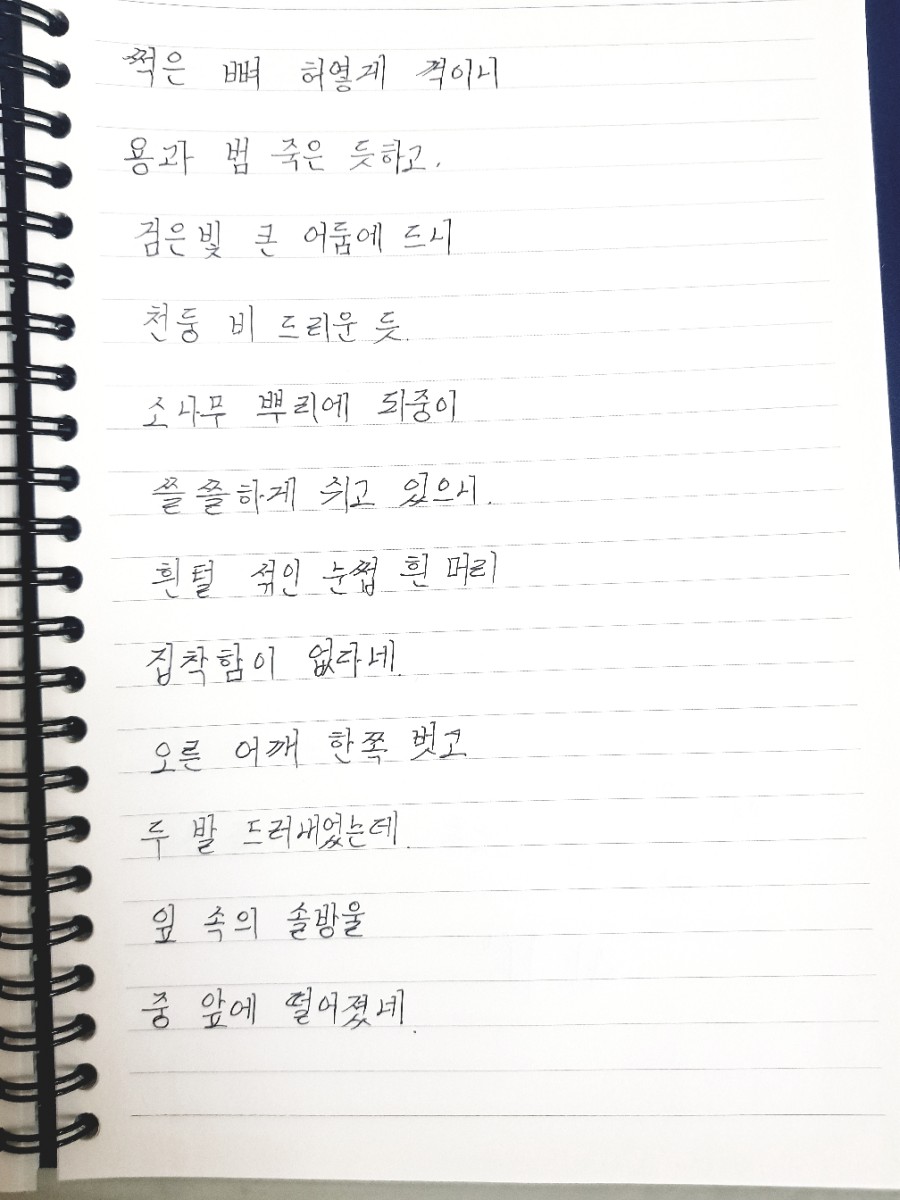 썩은 뼈 허옇게 꺽이니
용과 범 죽은 듯하고.
검은빛 큰 어둠에 드니
천둥 비 드리운 듯.
소나무 뿌리에 되중이
쓸쓸하게 쉬고 있으니.
흰털 섞인 눈썹 흰 머리
집착함이 없다네.
오른 어깨 한쪽 벗고
두 발 드러내었는데.
잎 속의 솔방울
중 앞에 떨어졌네.